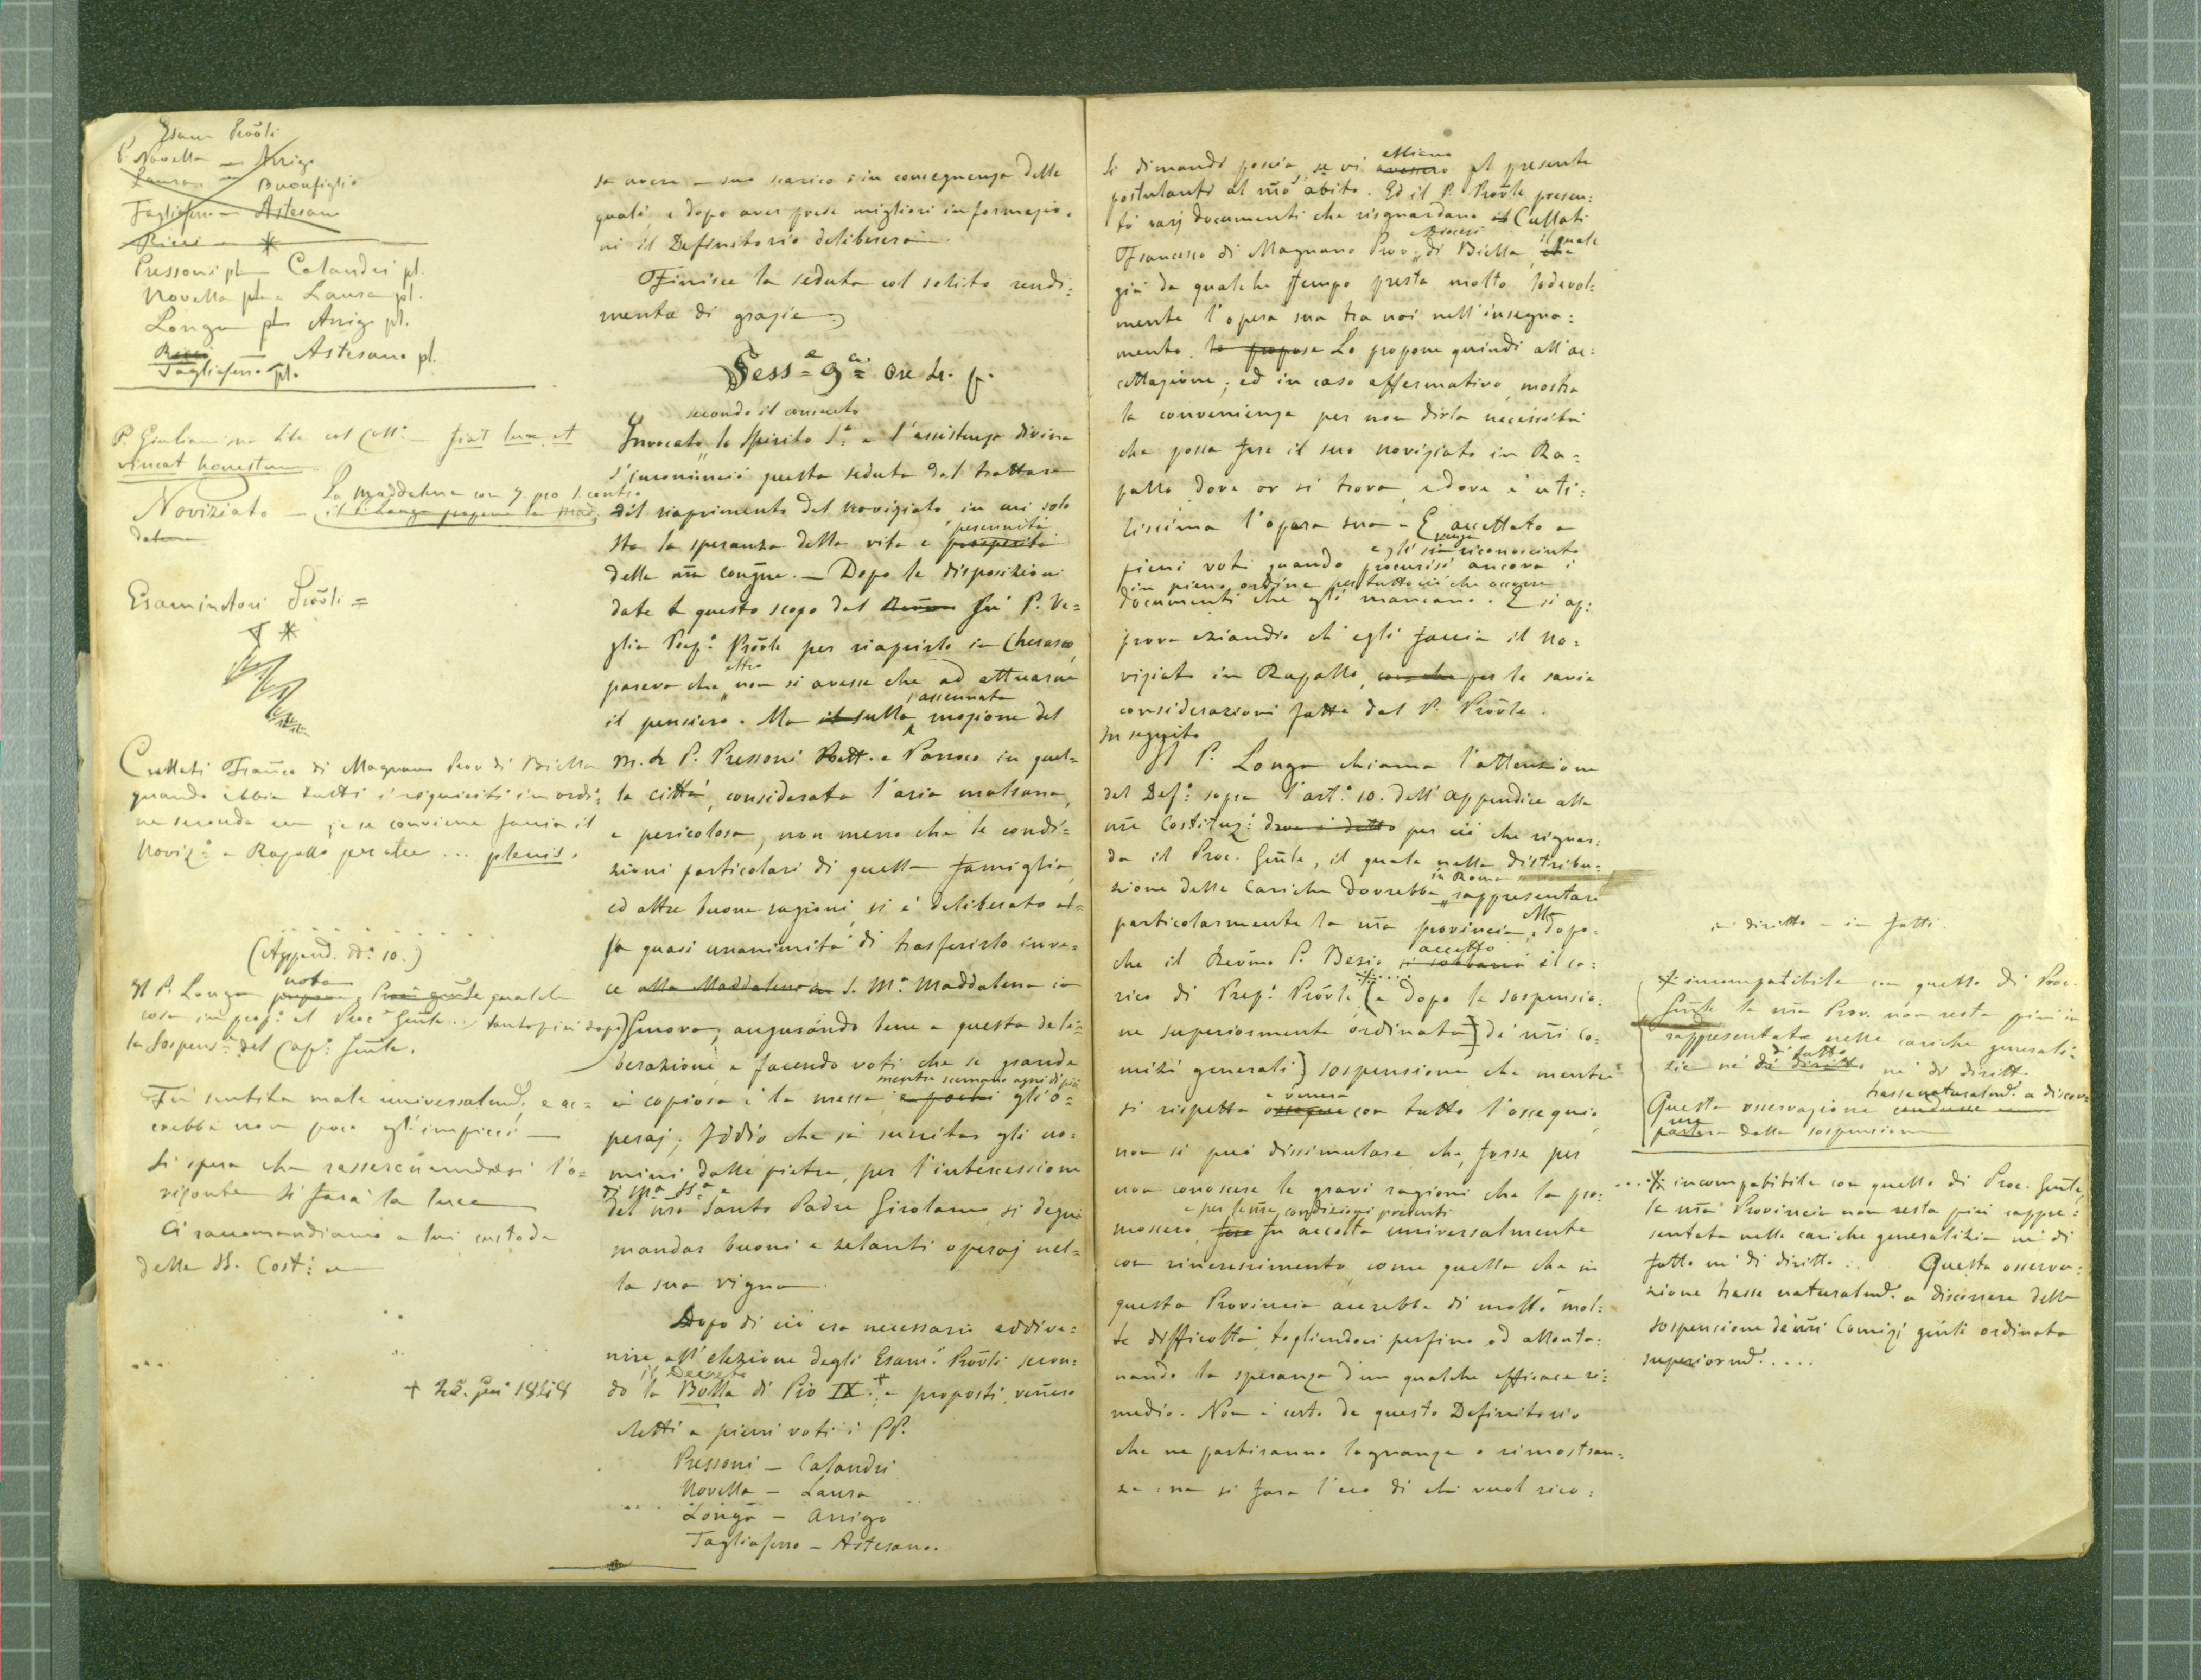 Esam. Prov̄li
P. Novella — Arrigo
Laura — Buonfiglio
Tagliaferro — Astesano
Ricci — *
Pressoni pl. — Calandri pl.
Novella pl. — Laura pl.
Longa pl. Arrigo pl.
Ricci — Astesano pl.
Tagliaferro pl.
P. Giuliani una lite col Coll:o — fiat lux, et
vincat honestum
La Maddalena con 7. pro 1. contro
Noviziato — il P. Longa propone la Mad-
dalena
Esaminatori Prov̄li =
*
Cullati Fran̄co di Magnano Prov di Biella
quando abbia tutti i requisiti in ordi:
ne secondo e se conviene faccia il
Noviz:o a Rapallo perchè ... plenis.
(Append. N:o 10.)
Il P. Longa propone nota Proc: gn̄le qualche
cosa in prop:o al Proc:e Gn̄le... tanto più dopo
la Sospens:ne del Cap:o Gn̄le.
Fu sentita male universalmd., e ac=
crebbe non poco gl'impicci —
Si spera che rasserenandosi l'o=
rizonte si farà la luce
Ci raccomandiamo a lui custode
delle SS. Cost:
+ 25. Giu 1848
sa avere — suo scarico: in conseguenza delle
quali e dopo aver prese migliori informazio-
ni il Definitorio delibererà.
Finisce la seduta col solito rendi:
mento di grazie.
Sess=e 9=a ore 4. p.
secondo il consueto
Invocato lo Spirito S:o e l'assistenza divina
s'incominciò questa seduta dal trattare
del riaprimento del noviziato in cui solo
perennità
sta la speranza della vita e prosperità
della n̄ra congn̄e. — Dopo le disposizioni
date a questo scopo dal Rev̄mo fù P. Ve=
glia Prep:o Prov̄le per riaprirlo in Cherasco,
altro
pareva che non si avesse che ad attuarne
assennata
il pensiero. Ma il sulla mozione del
M. R. P. Pressoni Rett. e Parroco in quel=
la città, considerata l'aria malsana,
e pericolosa, non meno che le condi=
zioni particolari di quella famiglia,
ed altre buone ragioni, si è deliberato al=
la quasi unanimità di trasferirlo inve=
ce alla Maddalena in S. M.a Maddalena in
Genova, augurando bene a questa deli=
berazione e facendo voti che se grande
mentre scemano ogni dì più
e copiosa è la messe, e pochi gli o=
peraj, Iddio che sa suscitar gli uo=
mini dalle pietre, per l'intercessione
di M.a SS.a e
del n̄ro Santo Padre Girolamo si degni
mandar buoni e zelanti operaj nel=
la sua vigna.
Dopo di ciò era necessario addive=
nire all'elezione degli Esam:i Prov̄li secon=
il Decreto
do la Bolla di Pio IX.+; e proposti, ven̄ero
eletti a pieni voti i PP.
Pressoni — Calandri
Novella — Laura
Longa — Arrigo
Tagliaferro — Astesano.
Si dimandò poscia, se vi avessero abbiano al presente
postulanti al n̄ro abito. Ed il P. Prov̄le presen:
tò varj documenti che risguardano il Cullati
Diocesi il quale
Francesco di Magnano Prov. di Biella, che
già da qualche tempo presta molto lodevol:
mente l'opera sua tra noi nell'insegna:
mento. lo propose Lo propone quindi all'ac:
cettazione; ed in caso affermativo, mostra
la convenienza per non dirla necessità
che possa fare il suo noviziato in Ra=
pallo, dove or si trova, e dove è uti:
lissima l'opera sua — È accettato a
egli sia venga riconosciuto
pieni voti quando procurisi ancora i
in pieno ordine per tutto ciò che occorre
documenti che gli mancano. E si ap:
prova eziandio ch'egli faccia il no:
viziato in Rapallo, per le savie
considerazioni fatte dal P. Prov̄le.
In seguito
Il P. Longa chiama l'attenzione
del Def:o sopra l'art:o 10. dell'appendice alle
n̄re Costituz:i dove è detto per ciò che riguar:
da il Proc. Gn̄le, il quale nella distribu=
in Roma
zione delle cariche dovrebbe rappresentare
particolarmente la n̄ra provincia. Ma dopo
accettò
che il Rev̄mo P. Besio si sobbarcò il ca=
rico di Prep:o Prov̄le (e dopo la sospensio:
ne superiormente ordinata de' n̄ri co=
mizi generali) sospensione che mentre
e venera
si rispetta ossequia con tutto l'ossequio
non si può dissimulare, che, forse per
non conoscere le gravi ragioni che la pro:
e per le n̄re condizioni presenti
mossero, fu accolta universalmente
con rincrescimento, come quella che in
questa Provincia accrebbe di molto mol:
te difficoltà, togliendoci perfino od allonta:
nando la speranza d'un qualche efficace ri:
medio. Non è certo da questo Definitorio
che ne partiranno lagnanze o rimostran:
ze: ne si farà l'eco di chi vuol rico:
in diritto — in fatti.
incompatibile con quello di Proc.
Gn̄le la n̄ra Prov. non resta più in
rappresentata nelle cariche generali=
di fatto
zie nè di diritto nè di diritto
trasse naturalmd. a discor:
Questa osservazione condusse
rere
parlare della sospensione
... incompatibile con quello di Proc. Gn̄le,
la n̄ra Provincia non resta più rappre:
sentata nelle cariche generalizie nè di
fatto nè di diritto... Questa osserva:
zione trasse naturalmd. a discorrere della
sospensione de' n̄ri Comizj gn̄li ordinata
superiormd.....